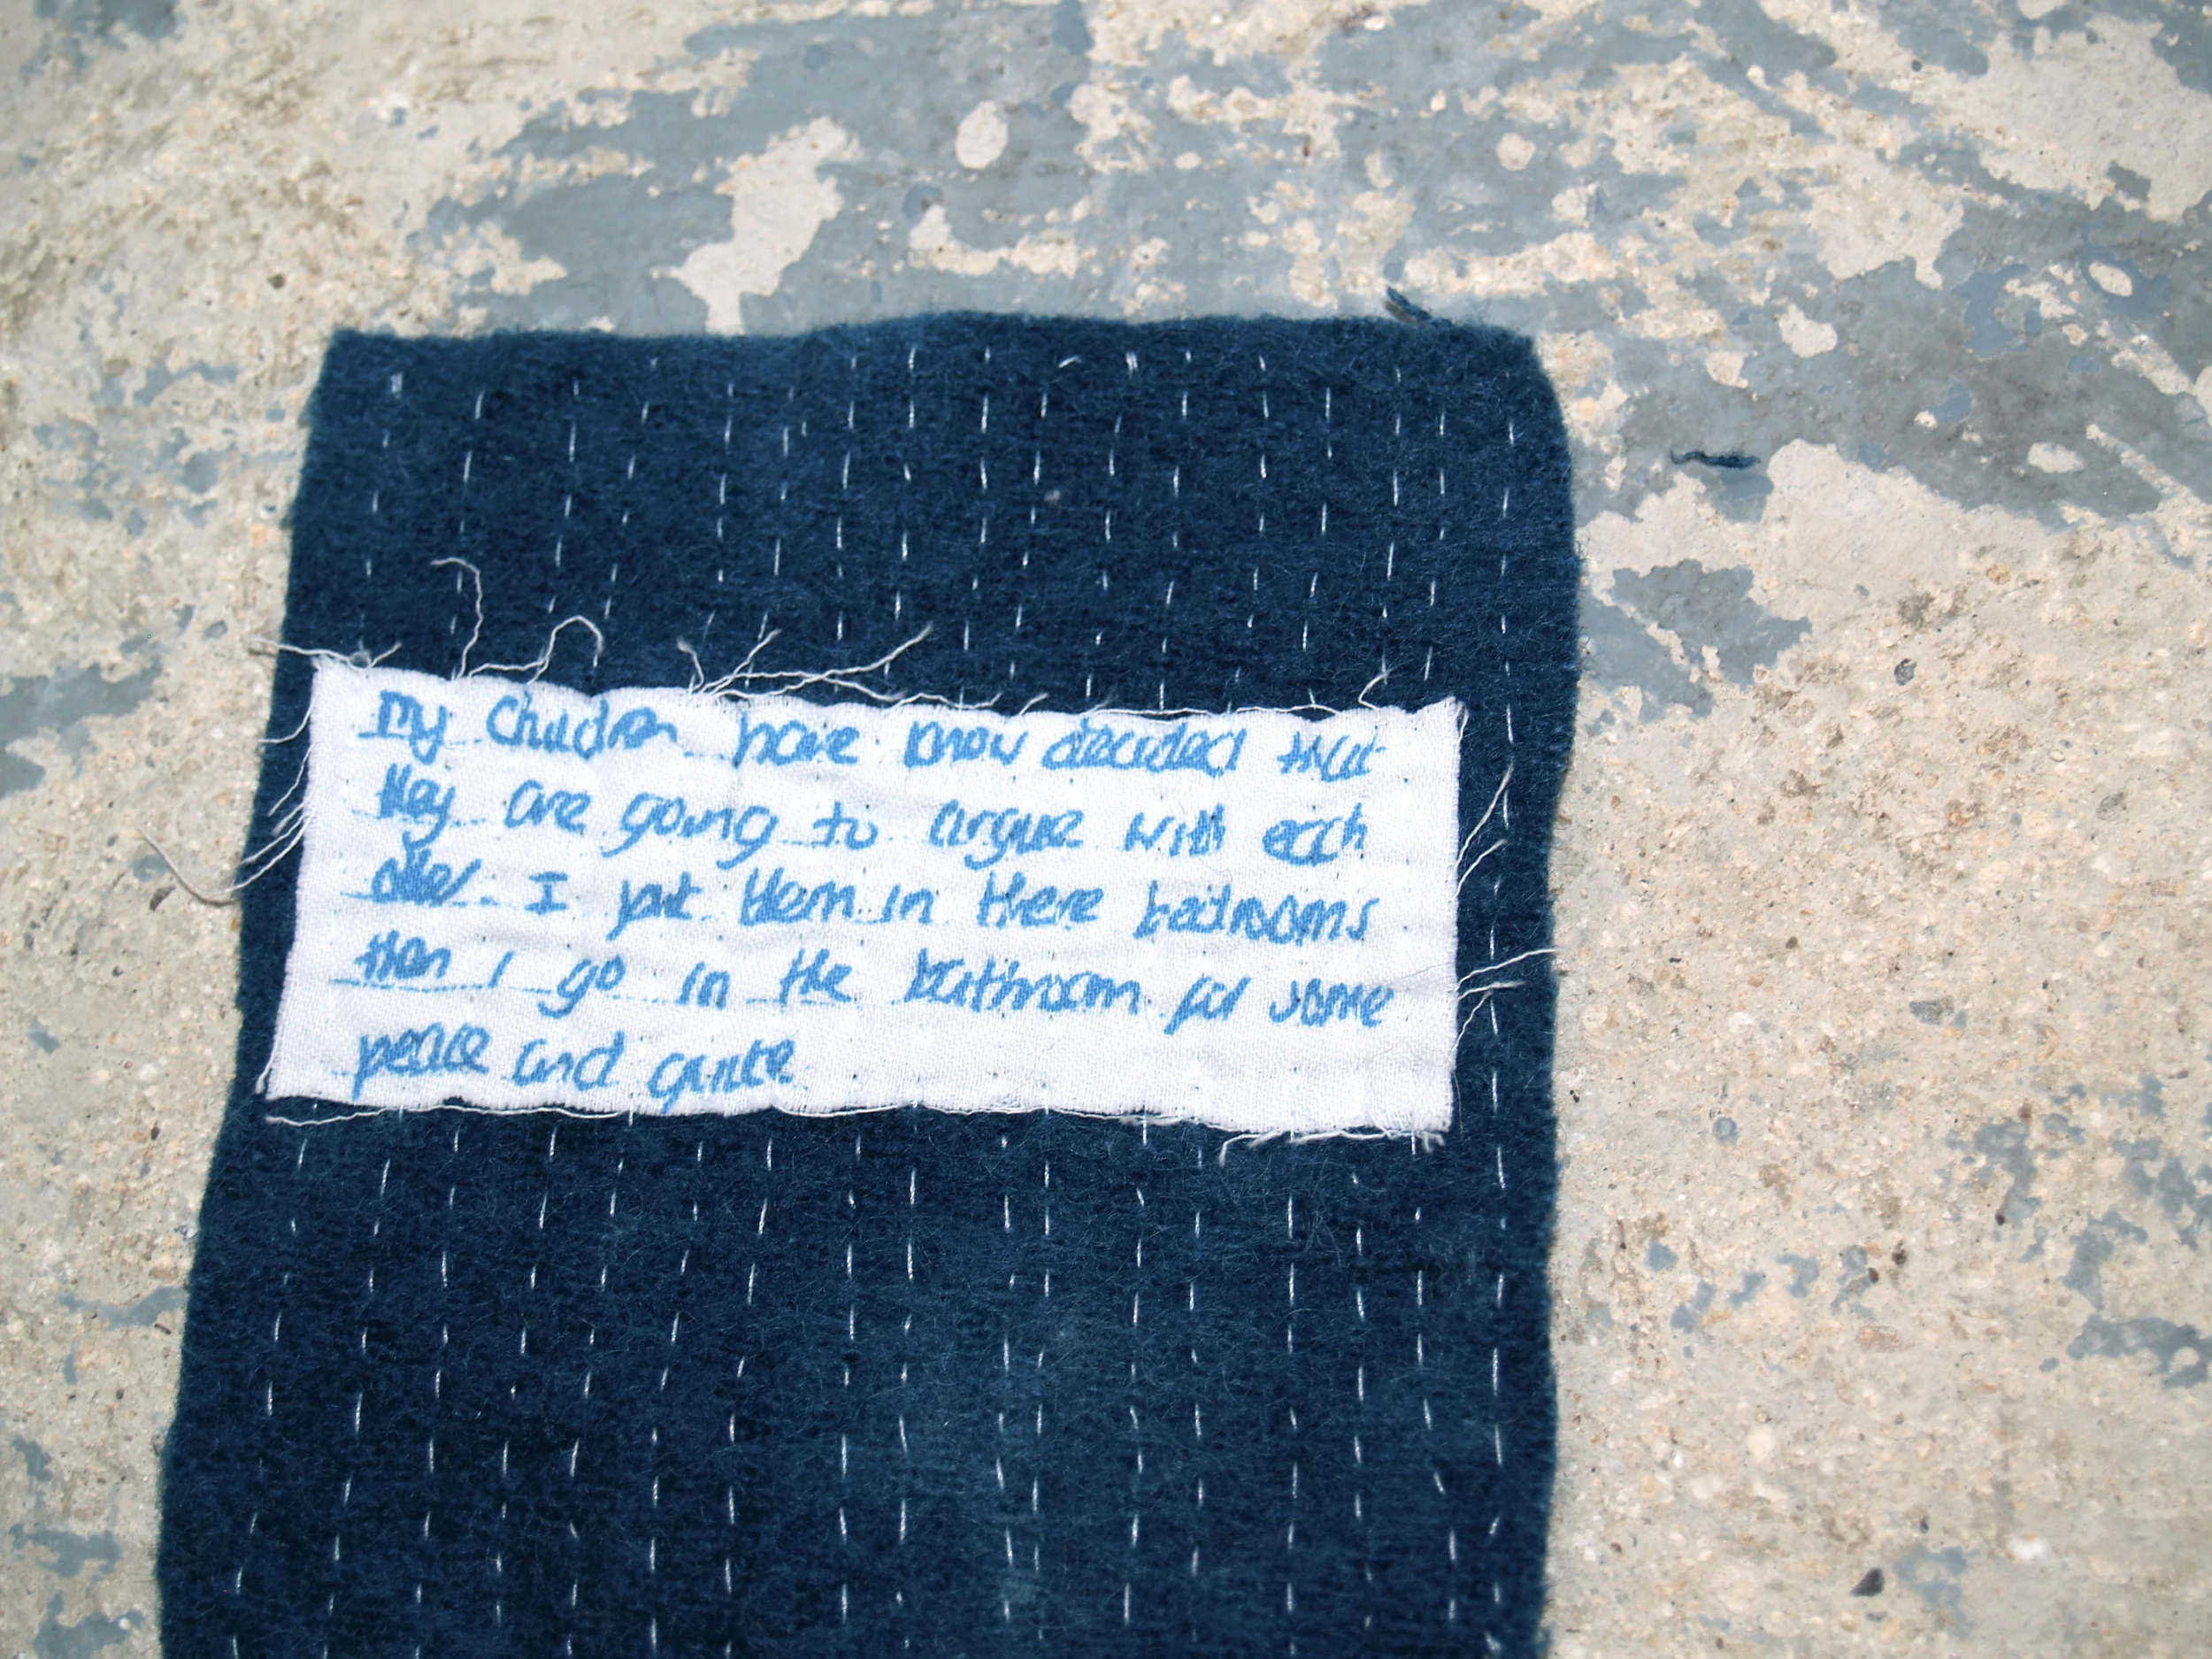 my children have know decided that
they are going to argue with each
other. I put them in there bedrooms
then I go in the bathroom for some
peace and quite